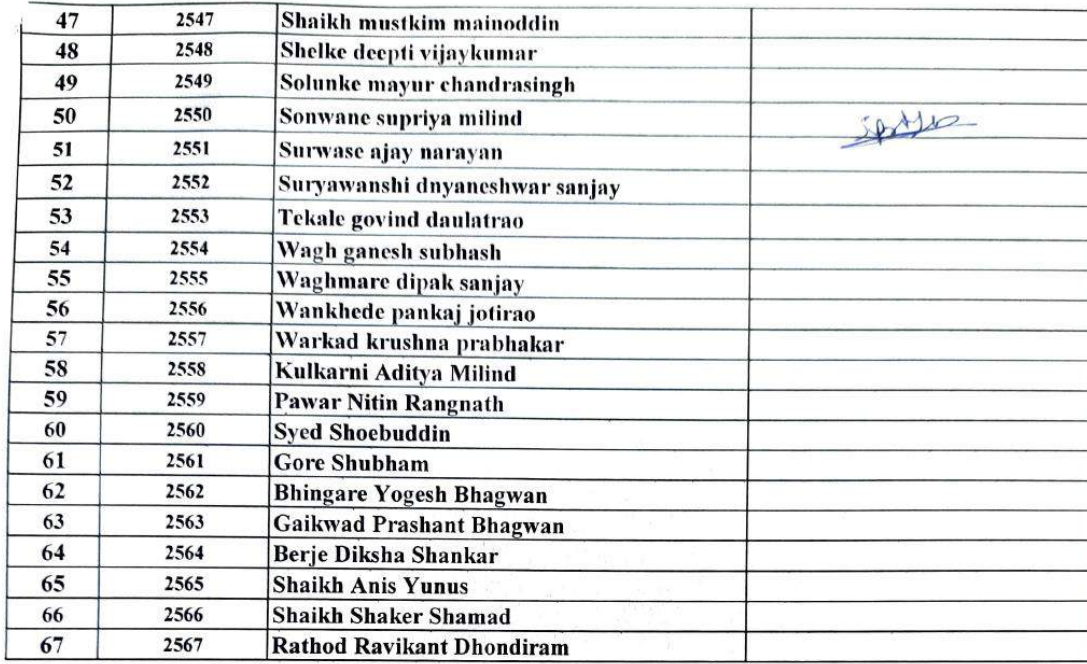 47 2547 Shaikh mustkim mainoddin
48 2548 Shelke deepti vijaykumar
49 2549 Solunke mayur chandrasingh
50 2550 Sonwane supriya milind
51 2551 Surwase ajay narayan
52 2552 Suryawanshi dnyaneshwar sanjay
53 2553 Tekale govind daulatrao
54 2554 Wagh ganesh subhash
55 2555 Waghmare dipak sanjay
56 2556 Wankhede pankaj jotirao
57 2557 Warkad krushna prabhakar
58 2558 Kulkarni Aditya Milind
59 2559 Pawar Nitin Rangnath
60 2560 Syed Shoebuddin
61 2561 Gore Shubham
62 2562 Bhingare Yogesh Bhagwan
63 2563 Gaikwad Prashant Bhagwan
64 2564 Berje Diksha Shankar
65 2565 Shaikh Anis Yunus
66 2566 Shaikh Shaker Shamad
67 2567 Rathod Ravikant Dhondiram